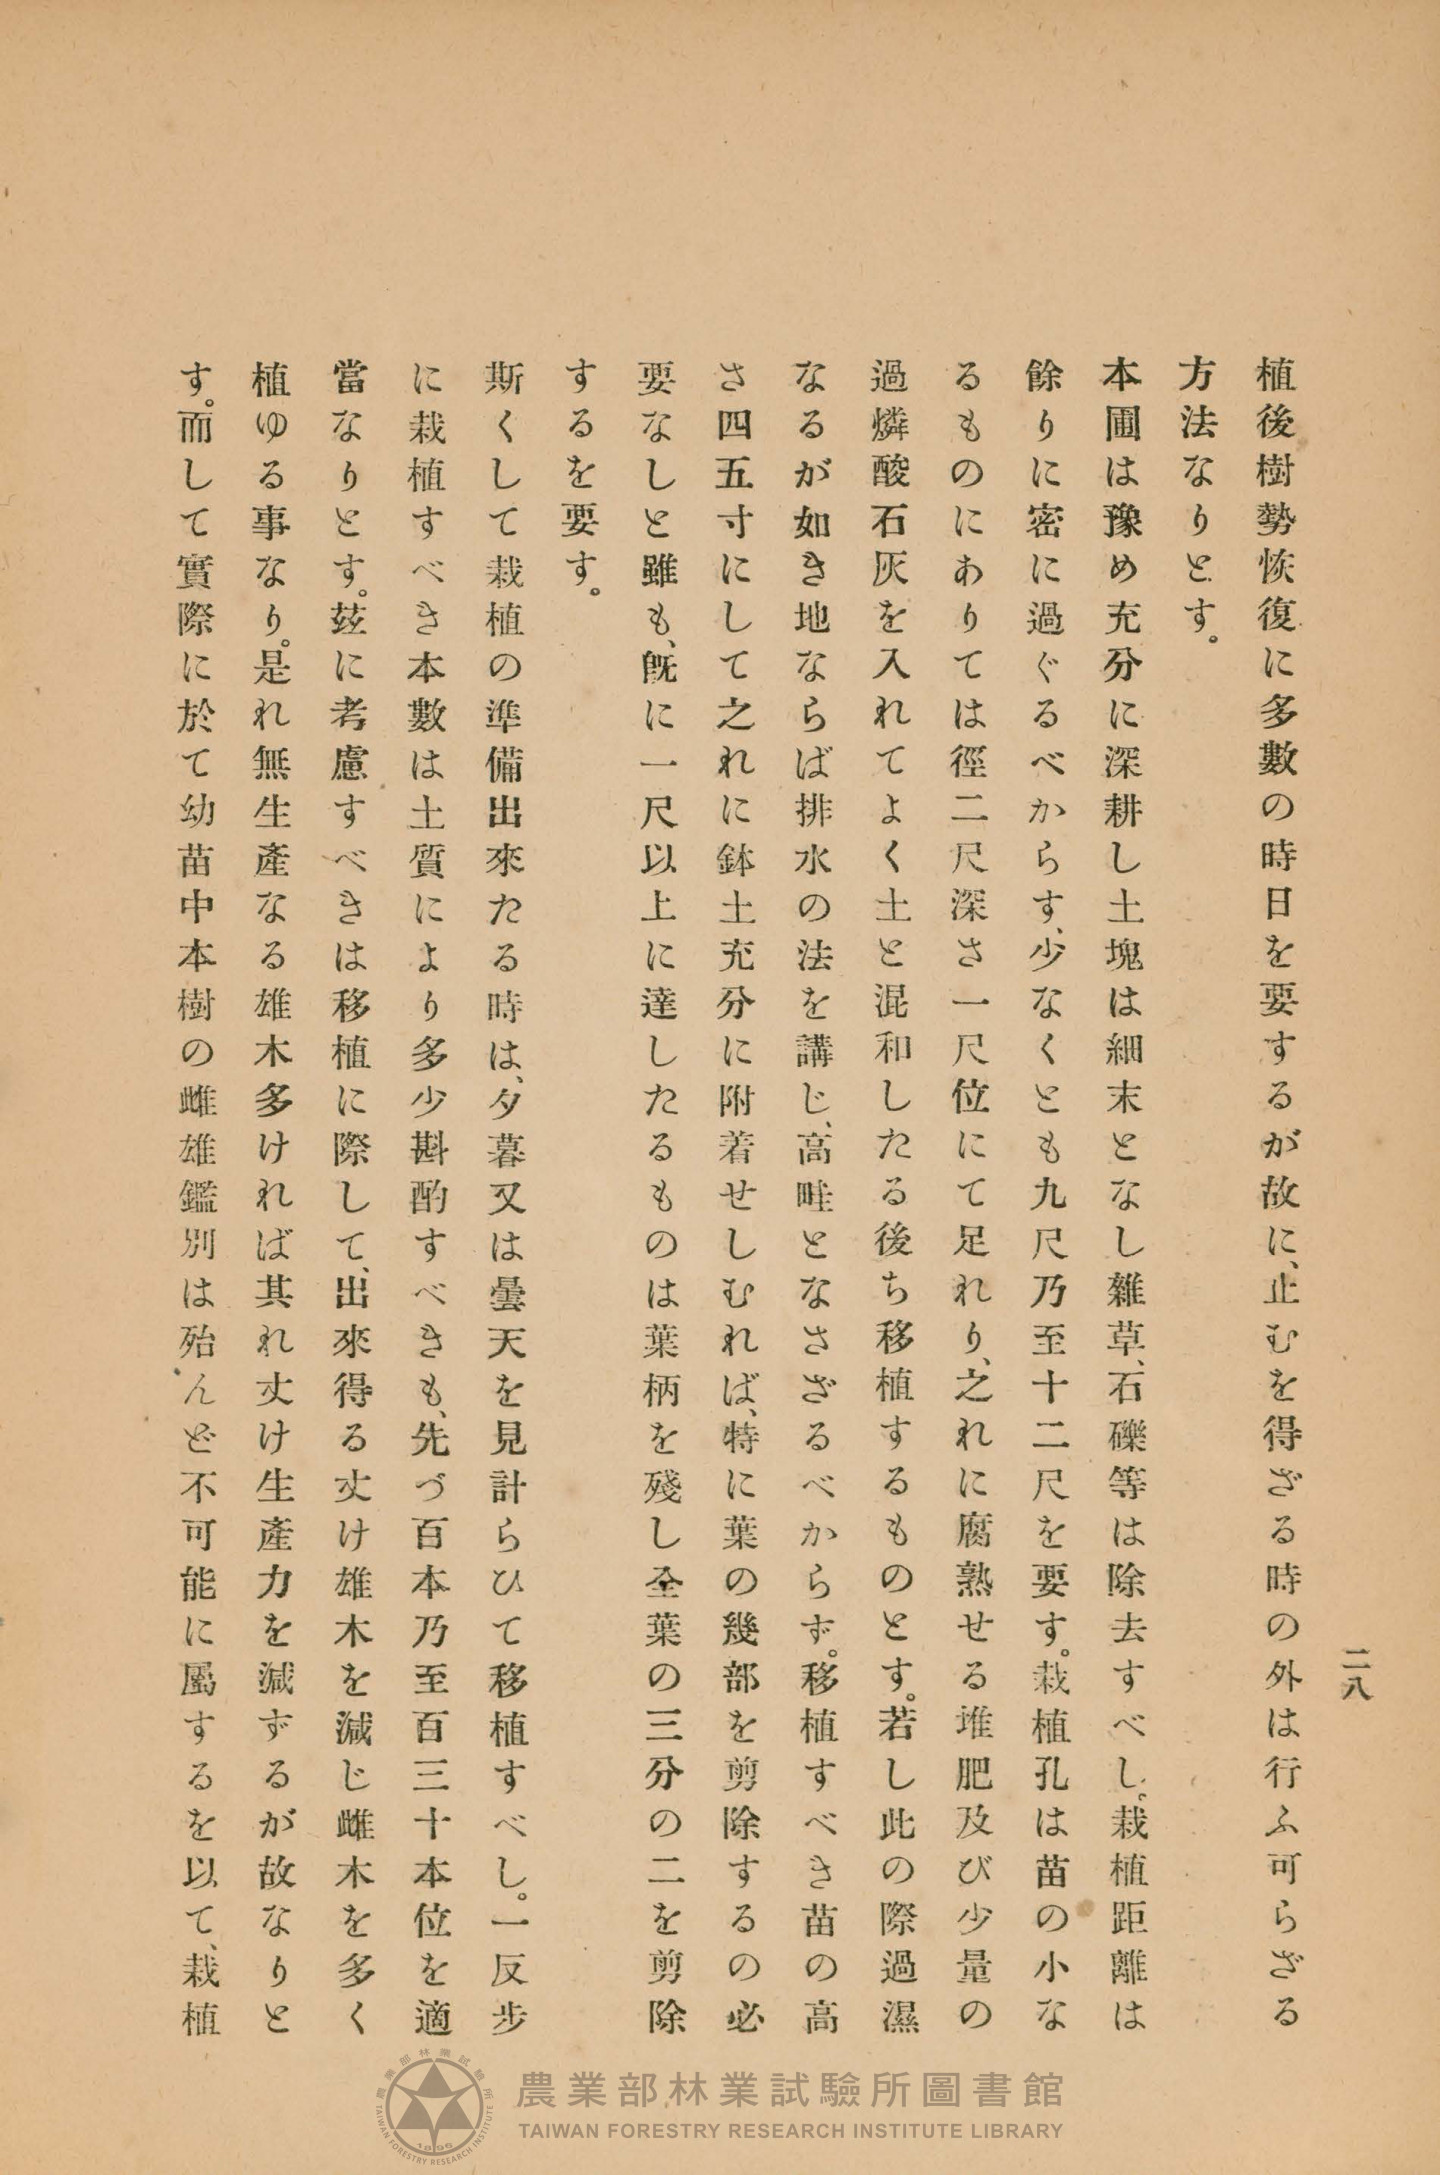 二八
植後樹勢恢復に多數の時日を要するが故に、止むを得ざる時の外は行ふ可らざる
方法なりとす。
本圃は豫め充分に深耕し土塊は細末となし雜草、石礫等は除去すべし。栽植距離は
餘りに密に過ぐるべからす、少なくとも九尺乃至十二尺を要す。栽植孔は苗の小な
るものにありては徑二尺深さ一尺位にて足れり、之れに腐熟せる堆肥及び少量の
過燐酸石灰を入れてよく土と混和したる後ち移植するものとす。若し此の際過濕
なるが如き地ならば排水の法を講じ、高畦となさざるべからず。移植すべき苗の高
さ四五寸にして之れに鉢土充分に附着せしむれば、特に葉の幾部を剪除するの必
要なしと雖も、旣に一尺以上に達したるものは葉柄を殘し全葉の三分の二を剪除
するを要す。
斯くして栽植の準備出來たる時は、夕暮又は曇天を見計らひて移植すべし。一反步
に栽植すべき本數は土質により多少斟酌すべきも、先づ百本乃至百三十本位を適
當なりとす。玆に考慮すべきは移植に際して、出來得る丈け雄木を減じ雌木を多く
植ゆる事なり。是れ無生產なる雄木多ければ其れ丈け生產力を減ずるが故なりと
す。而して實際に於て幼苗中本樹の雌雄鑑別は殆んど不可能に屬するを以て、栽植
農業部林業試驗所圖書館
TAIWAN FORESTRY RESEARCH INSTITUTE LIBRARY
農業部林業試驗所
TAIWAN FORESTRY RESEARCH INSTITUTE
1896